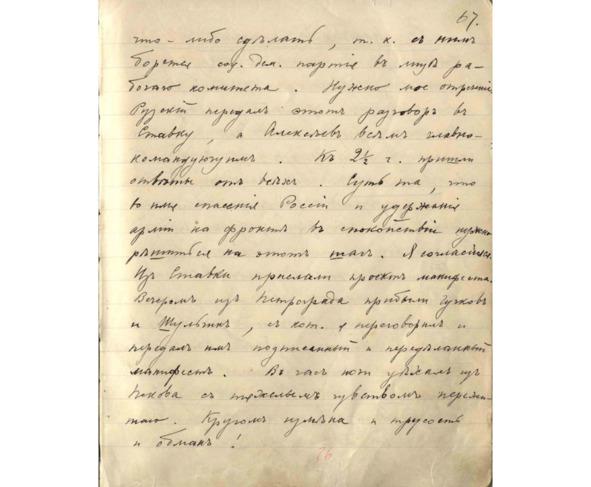 67.
что-либо сдѣлать, т. к. съ ним
борется соц. дем. партія въ лицѣ ра-
бочаго комитета. Нужно мое отреченіе.
Рузскій передалъ этотъ разговоръ въ
Ставку, а Алексѣевъ всѣмъ главно-
командующимъ. Къ 2½ ч. пришли
отвѣты отъ всѣхъ. Суть та, что
во имя спасенія Россіи и удержанія
арміи на фронтѣ въ спокойствіи нужно
рѣшиться на этотъ шагъ. Я согласился.
Изъ Ставки прислали проектъ манифеста.
Вечеромъ изъ Петрограда прибыли Гучковъ
и Шульгинъ, съ кот. я переговорилъ и
передалъ имъ подписанный и передѣланный
манифестъ. Въ часъ ночи уѣхалъ изъ
Пскова съ тяжелымъ чувствомъ пережи-
таго. Кругомъ измѣна и трусость
и обманъ!
76